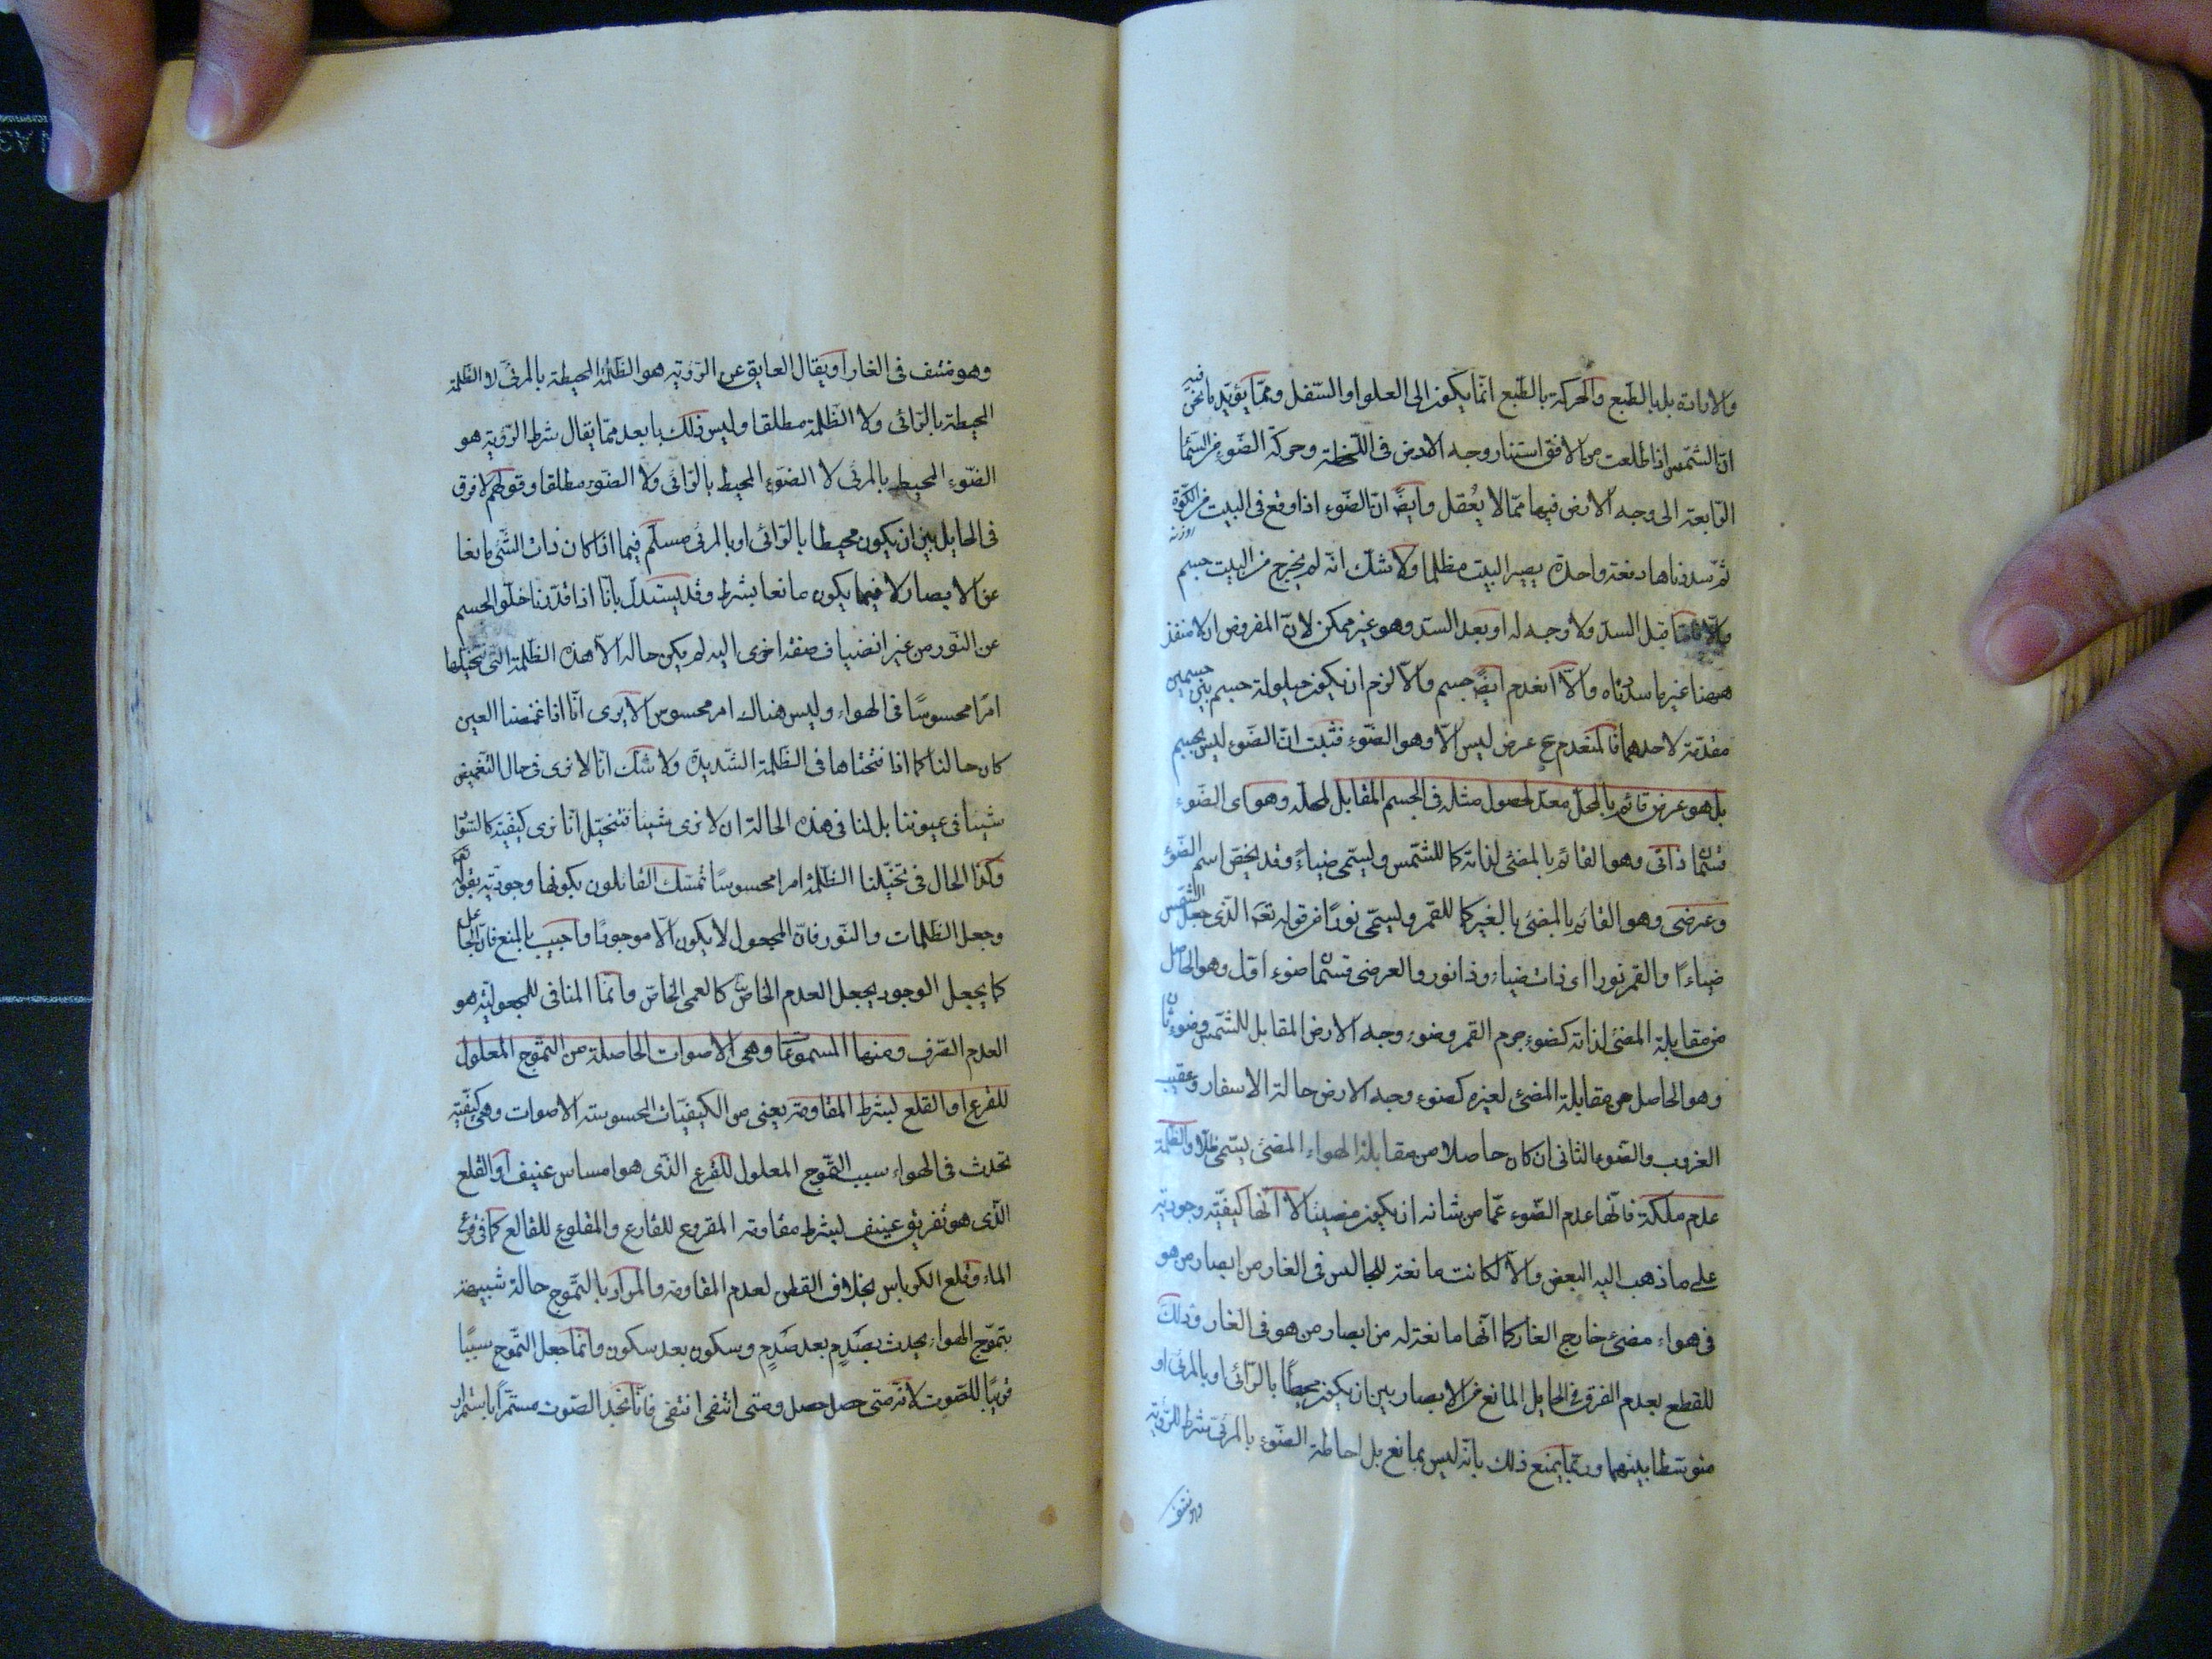 والارادة بل بالطبع والحركة بالطبع انما يكون الى العلو او السفل ومما يؤيد ما نحن فيه
ان الشمس اذا طلعت من الافق استنار وجه الارض فى اللحظة وحركة الضوء من السماء
الرابعة الى وجه الارض فيها مما لا يعقل وايضً ان الضوء اذا وقع فى البيت من الكوة
روزنه
ثم سددناها دفعة واحدة يصير البيت مظلما ولا شك انه لم يخرج من البيت جسم
قبل السد ولا وجه له او بعد السد وهو غير ممكن لان المفروض ان لا منفذ
ههنا غير ما سددناه والا انعدم ايضً جسم والا لزم ان يكون حيلولة جسم بين جسمين
معدمة لاحدهما فالمنعدم ح عرض ليس الا وهو الضوء فثبت ان الضوء ليس بجسم
بل هو عرض قائم بالمحل معد لحصول مثله فى الجسم المقابل لمحله وهو اى الضوء
قسمان ذاتى وهو القائم بالمضئ لذاته كما للشمس ويسمى ضياءً وقد يخص اسم الضوء
وعرضى وهو القائم بالمضئ بالغير كما للقمر ويسمى نورًا من قوله تعه الذى جعل الشمس
ضياءًا والقمر نورا اى ذات ضياء وذا نور والعرضى قسمان ضوء اول وهو الحاصل
من مقابلة المضئ لذاته كضوء جرم القمر وضوء وجه الارض المقابل للشمس وضوء ثان
وهو الحاصل من مقابلة المضئ لغيره كضوء وجه الارض حالة الاسفار وعقيب
الغروب والضوء الثانى ان كان حاصلا من مقابلة الهواء المضئ يسمى ظلًا والظلمة
عدم ملكة فانها عدم الضوء عما من شانه ان يكون مضيئا لا انها كيفية وجودية
على ما ذهب اليه البعض والا لكانت مانعة للجالس فى الغار من ابصار من هو
فى هواء مضئ خارج الغار كما انها مانعة له من ابصار من هو فى الغار وذلك
للقطع بعدم الفرق فى الحايل المانع من الابصار بين ان يكون محيطًا بالرائى او بالمرئى او
متوسطا بينهما وربما يمنع ذلك بانه ليس بمانع بل احاطة الضوء بالمرئى شرط للرؤية
وهو منتف
وهو منتف فى الغار او يقال العايق عن الرؤية هو الظلمة المحيطة بالمرئى لا الظلمة
المحيطة بالرائى ولا الظلمة مطلقا وليس ذلك بابعد مما يقال شرط الرؤية هو
الضوء المحيط بالمرئى لا الضوء المحيط بالرائى ولا الضوء مطلقا وقولهم لا فرق
فى الحايل بين ان يكون محيطا بالرائى او بالمرئى مسلم فيما اذا كان ذات الشئ مانعا
عن الابصار لا فيما يكون مانعا بشرط وقد يستدل بانا اذا قدرنا خلو الجسم
عن النور من غير انضياف صفة اخرى اليه لم يكن حاله الا هذه الظلمة التى نتخيلها
امرًا محسوسًا فى الهواء وليس هناك امر محسوس الا يرى انا اذا غمضنا العين
كان حالنا كما اذا فتحناها فى الظلمة الشديدة ولا شك انا لا نرى فى حال التغميض
شيئا فى عيوننا بل لنا فى هذه الحالة ان لا نرى شيئا فنتخيل انا نرى كيفية كالسواد
وكذا الحال فى تخيلنا الظلمة امرا محسوسًا تمسك القايلون بكونها وجودية بقوله تعه
وجعل الظلمات والنور فان المجعول لا يكون الا موجودًا واجيب بالمنع فان الجاعل
كما يجعل الوجود يجعل العدم الخاص كالعمى الخاص وانما المنافى للمجعولية هو
العدم الصرف ومنها المسموعات وهى الاصوات الحاصلة من التموج المعلول
للقرع او القلع بشرط المقاومة يعنى من الكيفيات المحسوسة الاصوات وهى كيفية
تحدث فى الهواء سبب التموج المعلول للقرع الذى هو امساس عنيف او القلع
الذى هو تفريق عنيف بشرط مقاومة المقروع للقارع والمقلوع للقالع كما فى قرع
الماء وقلع الكرباس بخلاف القطن لعدم المقاومة والمراد بالتموج حالة شبيهة
بتموج الهواء يحدث بصَدمٍ بعد صَدمٍ وسكون بعد سكون وانما جعل التموج سببًا
قريبًا للصوت لانه متى حصل حصل ومتى انتفى انتفى فانا نجد الصوت مستمرًا باستمرار